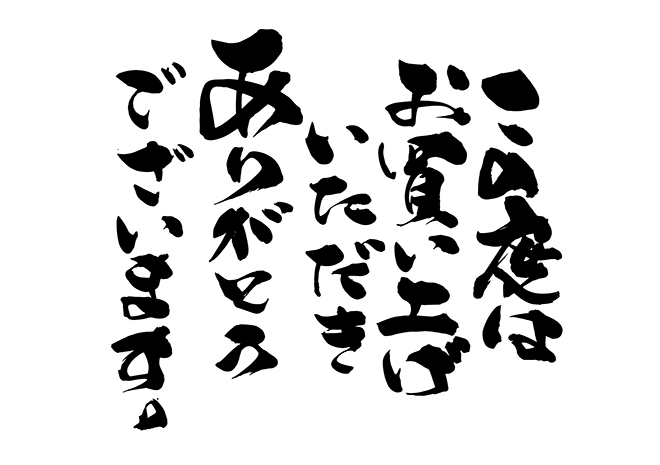 この度は
お買い上げ
いただき
ありがとう
ございます。